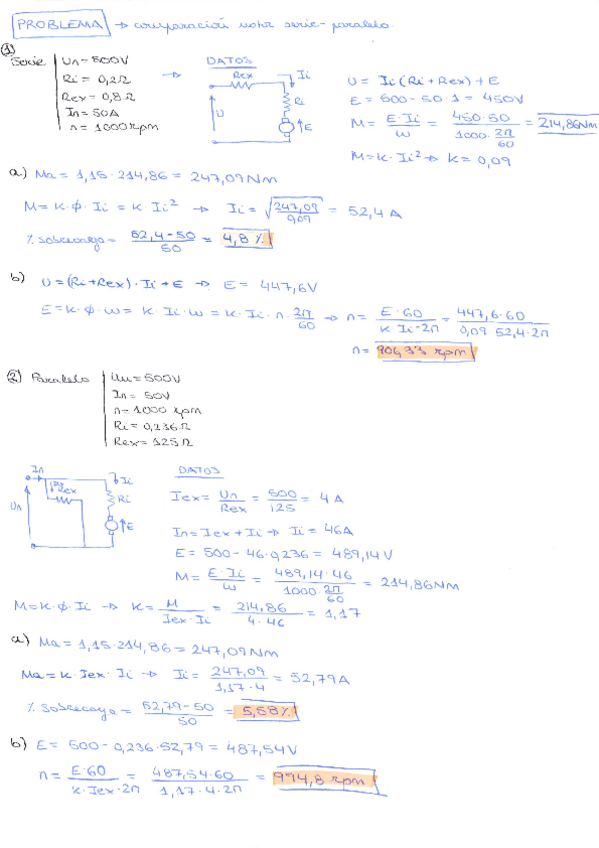 PROBLEMA → comparación motor serie-paralelo.
① Serie
Un = 500V
Ri = 0,2Ω
Rex = 0,8Ω
In = 50A
n = 1000rpm
→
DATOS
Rex
Ii
Ri
U
E
U = Ii (Ri + Rex) + E
E = 500 - 50 · 1 = 450V
M = E · Ii / ω = 450 · 50 / 1000 · 2π/60 = 214,86Nm
M = K · Ii² → K = 0,09
a) Ma = 1,15 · 214,86 = 247,09Nm
M = K · φ · Ii = K · Ii² → Ii = √(247,09 / 0,09) = 52,4 A
% sobrecarga = 52,4 - 50 / 50 = 4,8 %
b) U = (Ri + Rex) · Ii + E → E = 447,6V
E = K · φ · ω = K · Ii · ω = K · Ii · n · 2π/60 → n = E · 60 / K · Ii · 2π = 447,6 · 60 / 0,09 · 52,4 · 2π
n = 906,33 rpm
② Paralelo
Un = 500V
In = 50V
n = 1000 rpm
Ri = 0,236Ω
Rex = 125Ω
In
Rex
Ii
Ri
Un
E
DATOS
Iex = Un / Rex = 500 / 125 = 4 A
In = Iex + Ii → Ii = 46A
E = 500 - 46 · 0,236 = 489,14V
M = E · Ii / ω = 489,14 · 46 / 1000 · 2π/60 = 214,86Nm
M = K · φ · Ii → K = M / Iex · Ii = 214,86 / 4 · 46 = 1,17
a) Ma = 1,15 · 214,86 = 247,09Nm
Ma = K · Iex · Ii → Ii = 247,09 / 1,17 · 4 = 52,79A
% sobrecarga = 52,79 - 50 / 50 = 5,58%
b) E = 500 - 0,236 · 52,79 = 487,54V
n = E · 60 / K · Iex · 2π = 487,54 · 60 / 1,17 · 4 · 2π = 994,8 rpm